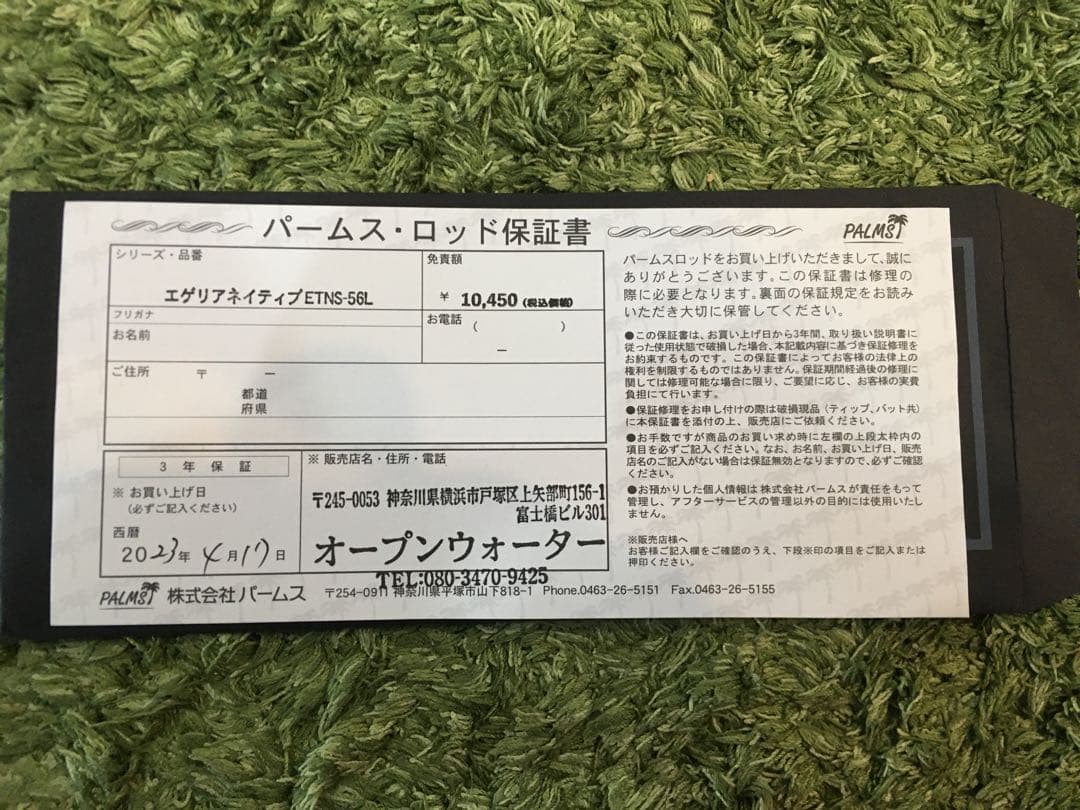 パームス・ロッド保証書
PALMS
シリーズ・品番
エゲリアネイティブETNS-56L
免責額
¥ 10,450 (税込価格)
フリガナ
お名前
お電話 ( )
－
ご住所 〒 －
都道
府県
3 年 保 証
※ お買い上げ日
(必ずご記入ください)
西暦
2023年 4月17日
※ 販売店名・住所・電話
〒245-0053 神奈川県横浜市戸塚区上矢部町156-1
富士橋ビル301
オープンウォーター
TEL:080-3470-9425
パームスロッドをお買い上げいただきまして、誠に
ありがとうございます。この保証書は修理の
際に必要となります。裏面の保証規定をお読み
いただき大切に保管してください。
●この保証書は、お買い上げ日から3年間、取り扱い説明書に
従った使用状態で破損した場合、本記載内容に基づき保証修理を
お約束するものです。この保証書によってお客様の法律上の
権利を制限するものではありません。保証期間経過後の修理に
関しては修理可能な場合に限り、ご要望に応じ、お客様の実費
負担にて行います。
●保証修理をお申し付けの際は破損現品（ティップ、バット共）
に本保証書を添付の上、販売店にご依頼ください。
●お手数ですが商品のお買い求め時に左欄の上段太枠内の
項目を必ずご記入ください。なお、お名前、お買い上げ日、販売
店名のご記入がない場合は保証無効となりますので、必ずご確認
ください。
●お預かりした個人情報は 株式会社パームスが責任をもって
管理し、アフターサービスの管理以外の目的には使用いたし
ません。
※販売店様へ
お客様ご記入欄をご確認のうえ、下段※印の項目をご記入または
押印ください。
PALMS 株式会社 パームス 〒254-0911 神奈川県平塚市山下818-1 Phone.0463-26-5151 Fax.0463-26-5155